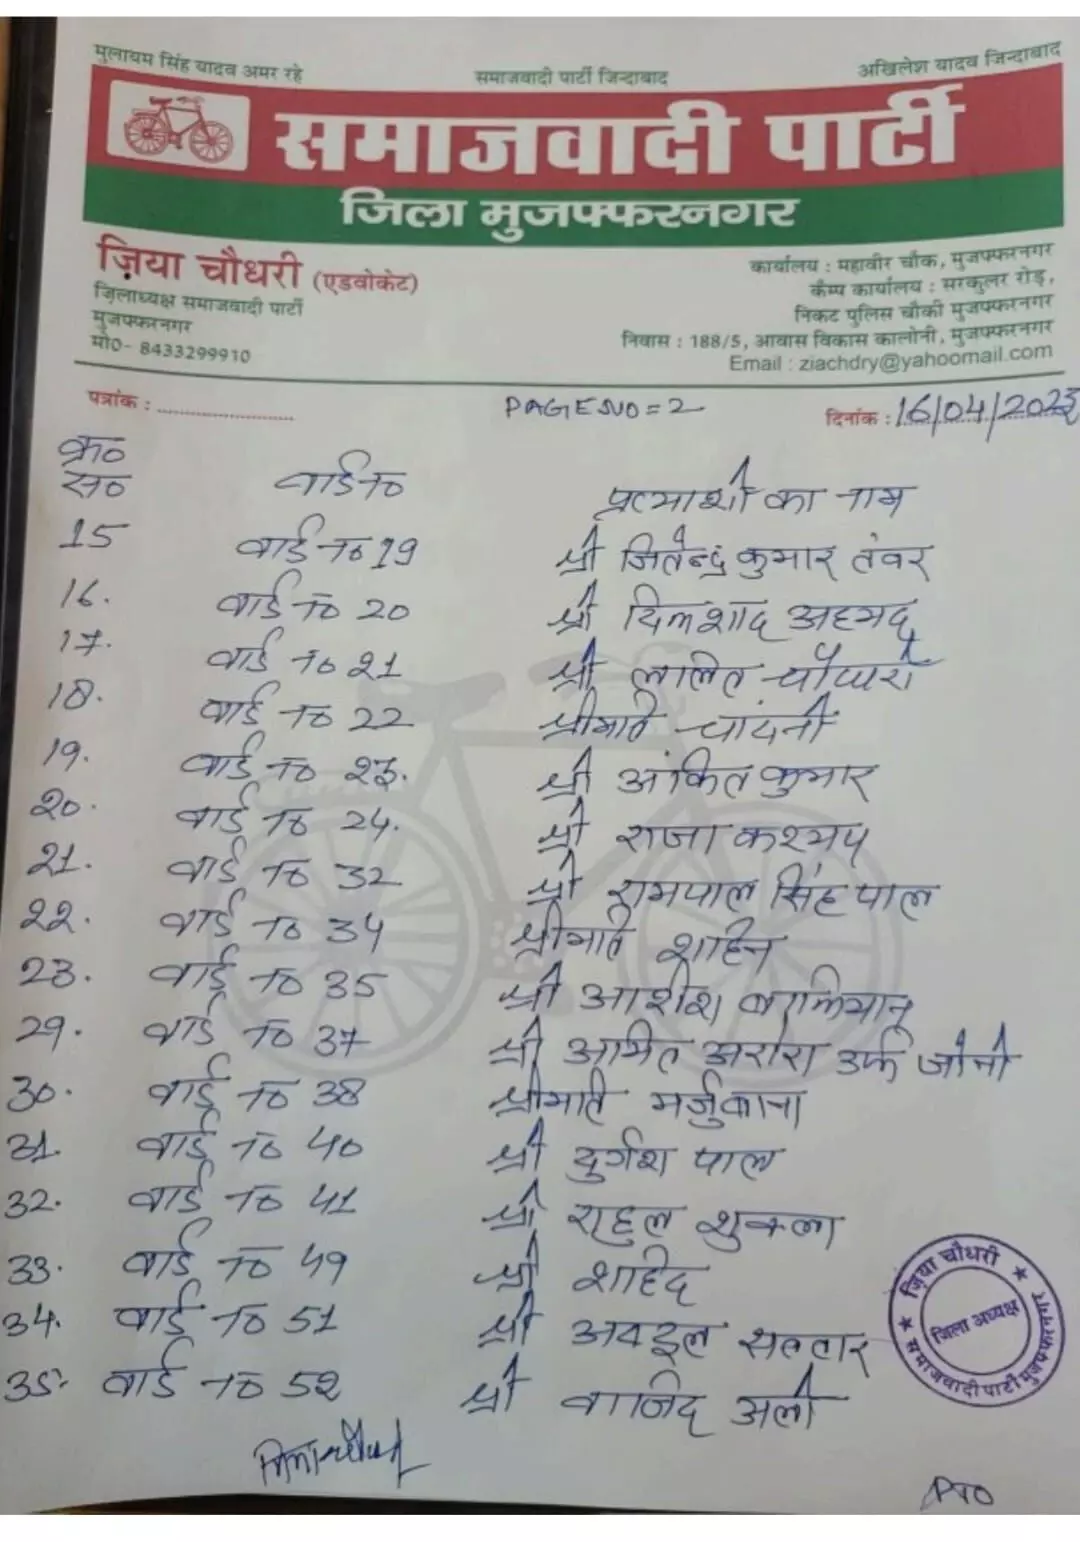 मुलायम सिंह यादव अमर रहे
समाजवादी पार्टी जिन्दाबाद
अखिलेश यादव जिन्दाबाद
समाजवादी पार्टी
जिला मुजफ्फरनगर
ज़िया चौधरी (एडवोकेट)
जिलाध्यक्ष समाजवादी पार्टी
मुजफ्फरनगर
मो0- 8433299910
कार्यालय : महावीर चौक, मुजफ्फरनगर
कैम्प कार्यालय : सरकुलर रोड़,
निकट पुलिस चौकी मुजफ्फरनगर
निवास : 188/5, आवास विकास कालोनी, मुजफ्फरनगर
Email : ziachdry@yahoomail.com
पत्रांक : PAGE NO = 2 दिनांक : 16/04/2023
क्र0
स0 वार्ड न0 प्रत्याशी का नाम
15 वार्ड न0 19 श्री जितेन्द्र कुमार तंवर
16. वार्ड न0 20 श्री दिलशाद अहमद
17. वार्ड न0 21 श्री ललित चौधरी
18. वार्ड न0 22 श्रीमति चांदनी
19. वार्ड न0 23. श्री अंकित कुमार
20. वार्ड न0 24. श्री राजा कश्यप
21. वार्ड न0 32 श्री रामपाल सिंह पाल
22. वार्ड न0 34 श्रीमति शाहिन
23. वार्ड न0 35 श्री आशीश बालियान
29. वार्ड न0 37 श्री अमित अरोरा उर्फ जोनी
30. वार्ड न0 38 श्रीमति
31. वार्ड न0 40 श्री दुर्गेश पाल
32. वार्ड न0 41 श्री राहुल शुक्ला
33. वार्ड न0 49 श्री शाहिद
34. वार्ड न0 51 श्री अबदुल सत्तार
35. वार्ड न0 52 श्री वाजिद अली
ज़िया चौधरी
जिला अध्यक्ष
समाजवादी पार्टी मुजफ्फरनगर
PTO